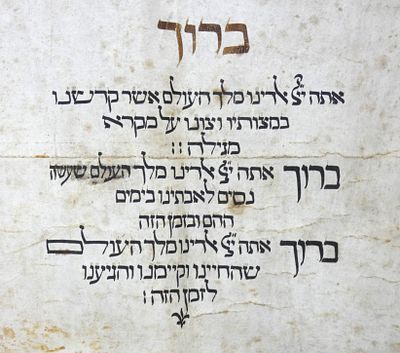 ברוך
אתה יי׳ אלהינו מלך העולם אשר קדשנו
במצותיו וצונו על מקרא
מגילה ::
ברוך אתה יי׳ אלהינו מלך העולם שעשה
נסים לאבתינו בימים
ההם ובזמן הזה
ברוך אתה יי׳ אלהינו מלך העולם
שהחיינו וקיימנו והגיענו
לזמן הזה :